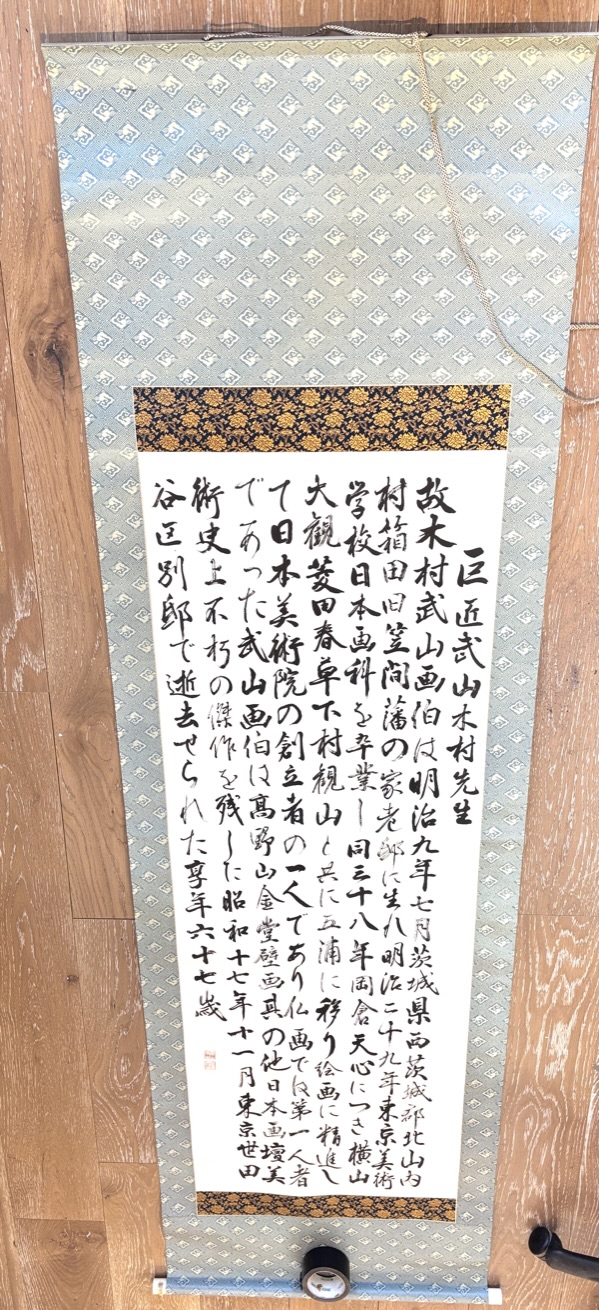 巨匠武山木村先生
故木村武山画伯は明治九年七月茨城県西茨城郡北山内
村箱田旧笠間藩の家老邸に生れ明治二十九年東京美術
学校日本画科を卒業し同三十八年岡倉天心につき横山
大観菱田春草下村観山と共に五浦に移り絵画に精進し
て日本美術院の創立者の一人であり仏画では第一人者
であった武山画伯は高野山金堂壁画其の他日本画壇美
術史上不朽の傑作を残した昭和十七年十一月東京世田
谷区別邸で逝去せられた享年六十七歳